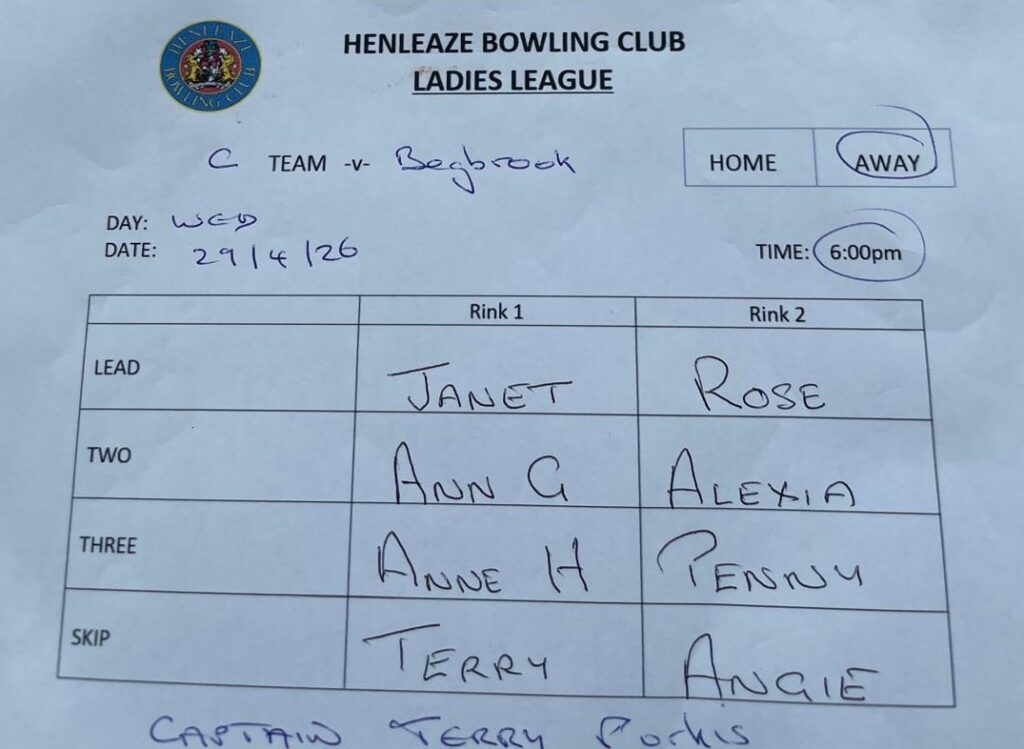 HENLEAZE BOWLING CLUB
HENLEAZE BOWLING CLUB
LADIES LEAGUE
C TEAM -v- Begbrook
HOME AWAY
DAY: WED
DATE: 29/4/26
TIME: 6:00pm
Rink 1 Rink 2
LEAD JANET ROSE
TWO ANN G ALEXIA
THREE ANNE H PENNY
SKIP TERRY ANGIE
CAPTAIN TERRY Porkis